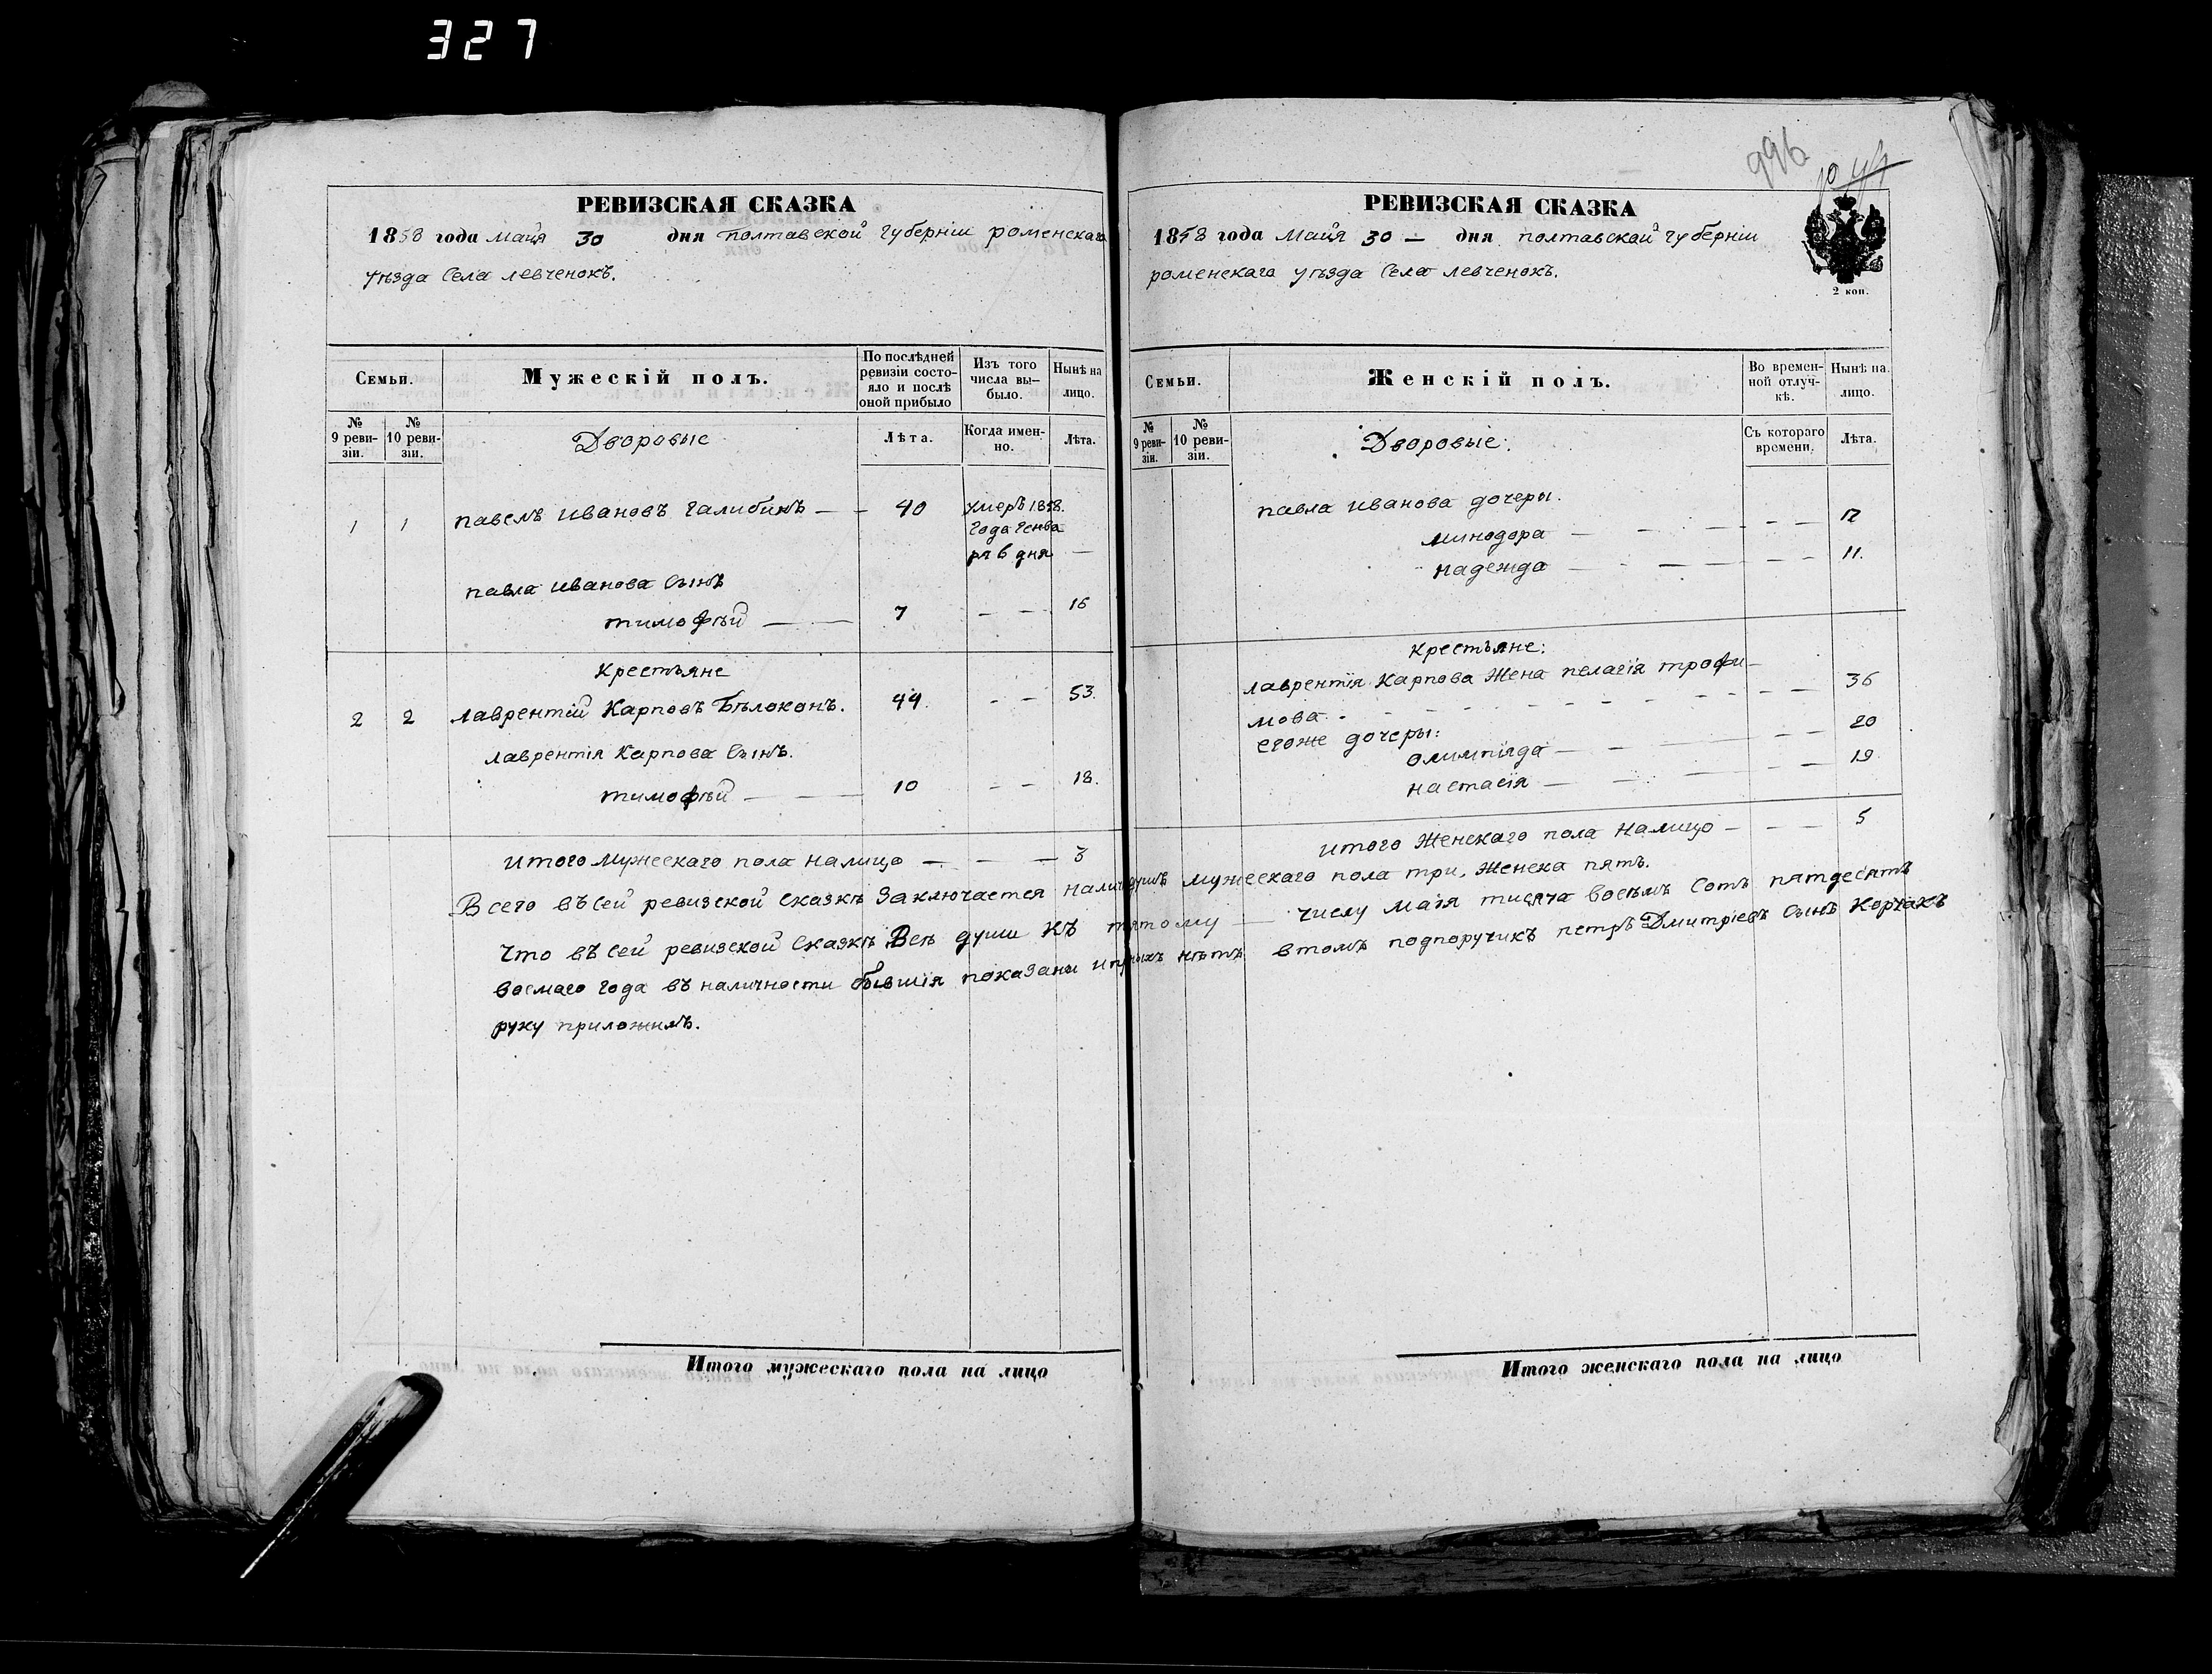 327
996
РЕВИЗСКАЯ СКАЗКА
1858 года Маія 30 дня полтавской губерніи роменскаго
уѣзда Села левченокъ.
Семьи.
Мужескій полъ.
По послѣдней ревизіи состояло и послѣ оной прибыло
Изъ того числа выбыло.
Нынѣ на лицо.
№ 9 ревизіи.
№ 10 ревизіи.
Дворовые
Лѣта.
Когда именно.
Лѣта.
1 1 павелъ Ивановъ Галибинъ — 40 умеръ 1858.
года генва
ря 6 дня —
павла Иванова Сынъ
тимофѣй — 7 — — 16
Крестьяне
2 2 лаврентій Карповъ Бѣлоконъ. 44. — — 53.
лаврентія Карпова Сынъ.
тимофѣй — — 10 — — 18.
Итого Мужескаго пола налицо — — — 3
РЕВИЗСКАЯ СКАЗКА
1858 года Маія 30 — дня полтавской губерніи
роменскаго уѣзда Села левченокъ.
2 коп.
Семьи.
Женскій полъ.
Во временной отлучкѣ.
Нынѣ на лицо.
№ 9 ревизіи.
№ 10 ревизіи.
Дворовые:
Съ котораго времени.
Лѣта.
павла Иванова дочеры.
минодора — — — — — 12
надежда — — — — — 11.
Крестьяне:
лаврентія Карпова Жена пелагія трофи-
мова. — — — — — — 36
егоже дочеры:
олимпіада — — — — — 20
настасія — — — — — 19
итого Женскаго пола налицо — — — 5
Всего въ сей ревизской сказкѣ Заключается налицо душъ мужескаго пола три, Женска пять.
Что въ сей ревизской Сказкѣ Всѣ души Къ пятому — числу Маія тисяча восемь Сотъ пятдесятъ
восмаго года въ наличности бывшія показани и нѣтъ втомъ подпоручикъ петръ Дмитріевъ Сынъ Корчакъ
руку приложилъ.
Итого мужескаго пола на лицо
Итого женскаго пола на лицо